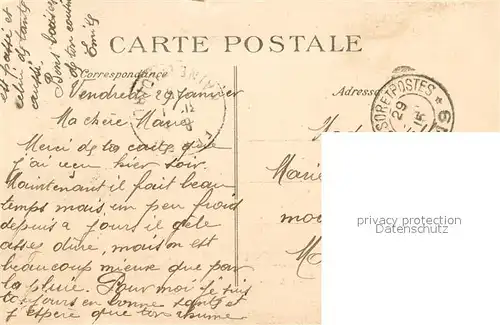 est passé et
celui de tante
aussi
Bons baisers
de ton cousin
Emile
CARTE POSTALE
Correspondance
Adresse
Vendredi 29 Janvier
Ma chère Marie
Merci de ta carte que
j'ai reçu hier soir.
Maintenant il fait beau
temps mais un peu froid
depuis 2 jours il gèle
assez dûre, mais on est
beaucoup mieux que par
la pluie. Pour moi je suis
toujours en bonne santé et
j'espère que ton rhume
Marie
TRESOR ET POSTES
29
15
privacy protection
ansichtskarten-center.de